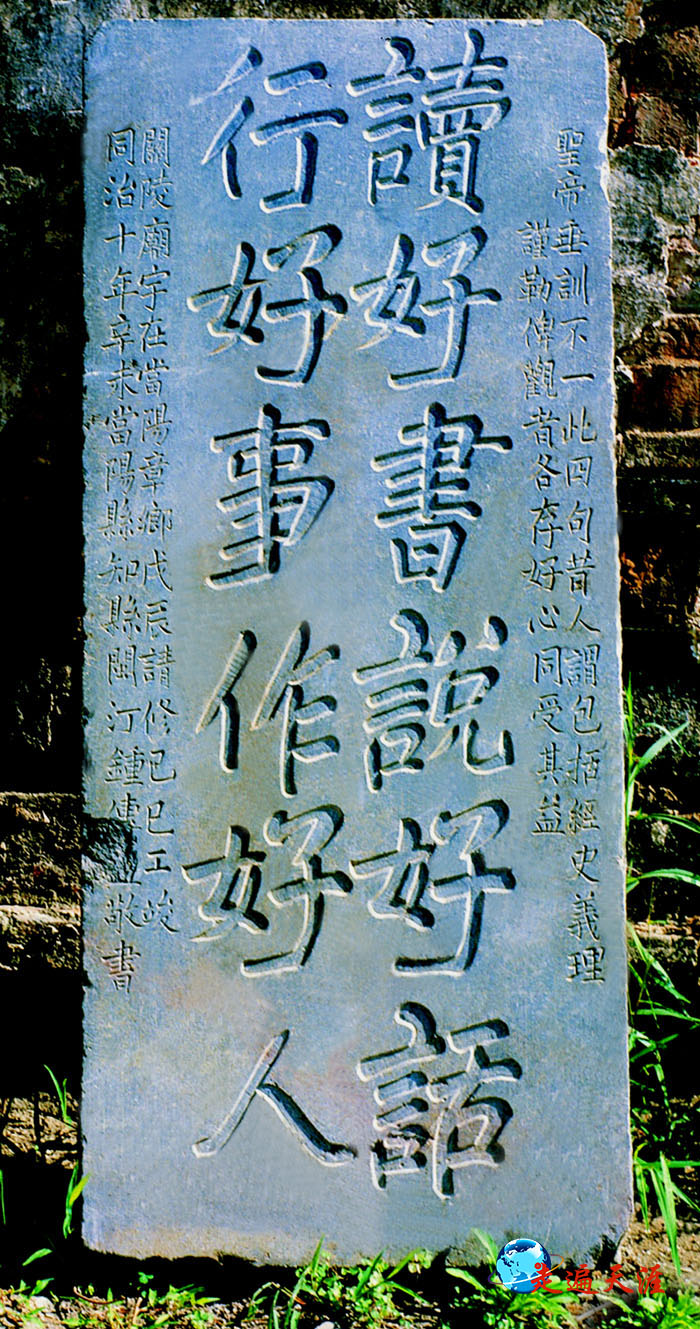 聖帝垂訓不一此四句昔人謂包括經史義理
謹勒俾觀者各存好心同受其益
讀好書說好話
行好事作好人
關陵廟宇在當陽章鄉戊辰請修己巳工竣
同治十年辛未當陽縣知縣閩汀鍾傳 敬書
走遍天涯